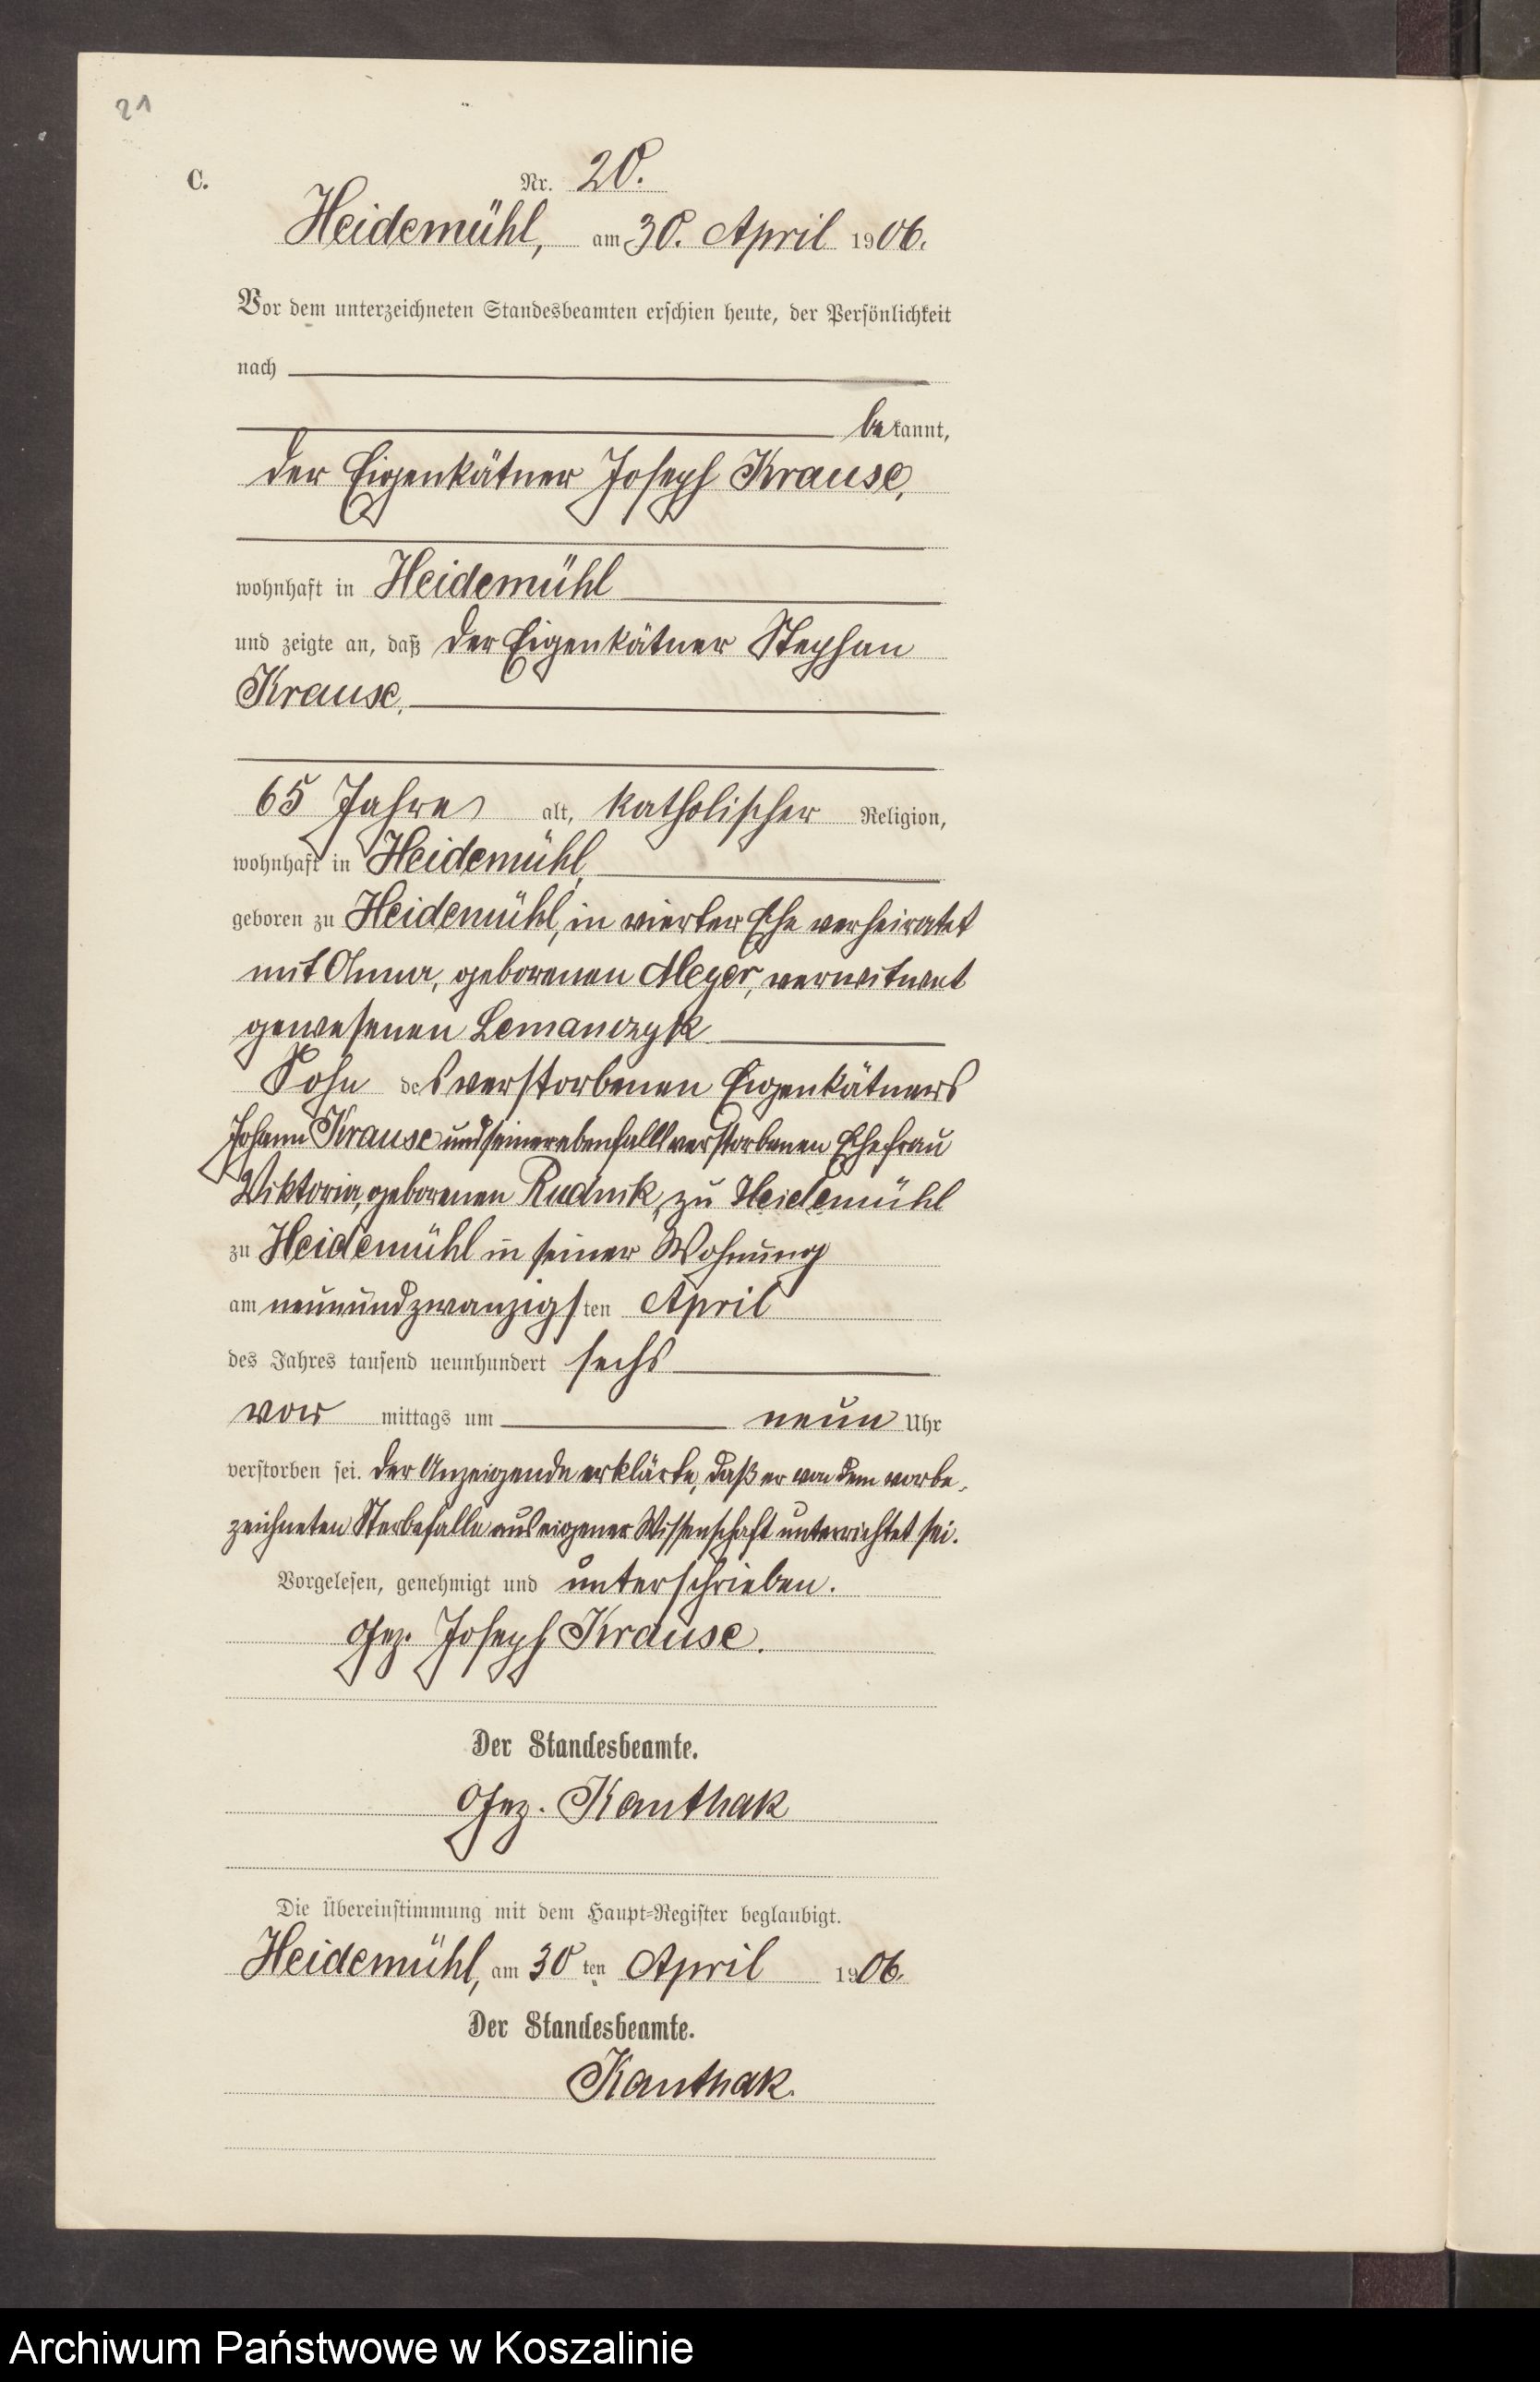 21
C.
Nr. 20.
Heidemühl, am 30. April 1906.
Vor dem unterzeichneten Standesbeamten erschien heute, der Persönlichkeit
nach
bekannt,
der Eigenkätner Joseph Krause,
wohnhaft in Heidemühl
und zeigte an, daß der Eigenkätner Stephan
Krause,
65 Jahre alt, katholischer Religion,
wohnhaft in Heidemühl,
geboren zu Heidemühl, in vierter Ehe verheiratet
mit Anna, geborenen Meyer, verwitwet
gewesenen Lemanczyk
Sohn des verstorbenen Eigenkätners
Johann Krause und seiner ebenfalls verstorbenen Ehefrau
Viktoria, geborenen Rudnik, zu Heidemühl
zu Heidemühl in seiner Wohnung
am neunundzwanzigsten April
des Jahres tausend neunhundert sechs
vor mittags um neun Uhr
verstorben sei. Der Anzeigende erklärte, daß er von dem vorbe-
zeichneten Sterbefalle aus eigener Wissenschaft unterrichtet sei.
Vorgelesen, genehmigt und unterschrieben.
Gez. Joseph Krause.
Der Standesbeamte.
Gez. Kanthak
Die Übereinstimmung mit dem Haupt-Register beglaubigt.
Heidemühl, am 30ten April 1906.
Der Standesbeamte.
Kanthak.
Archiwum Państwowe w Koszalinie